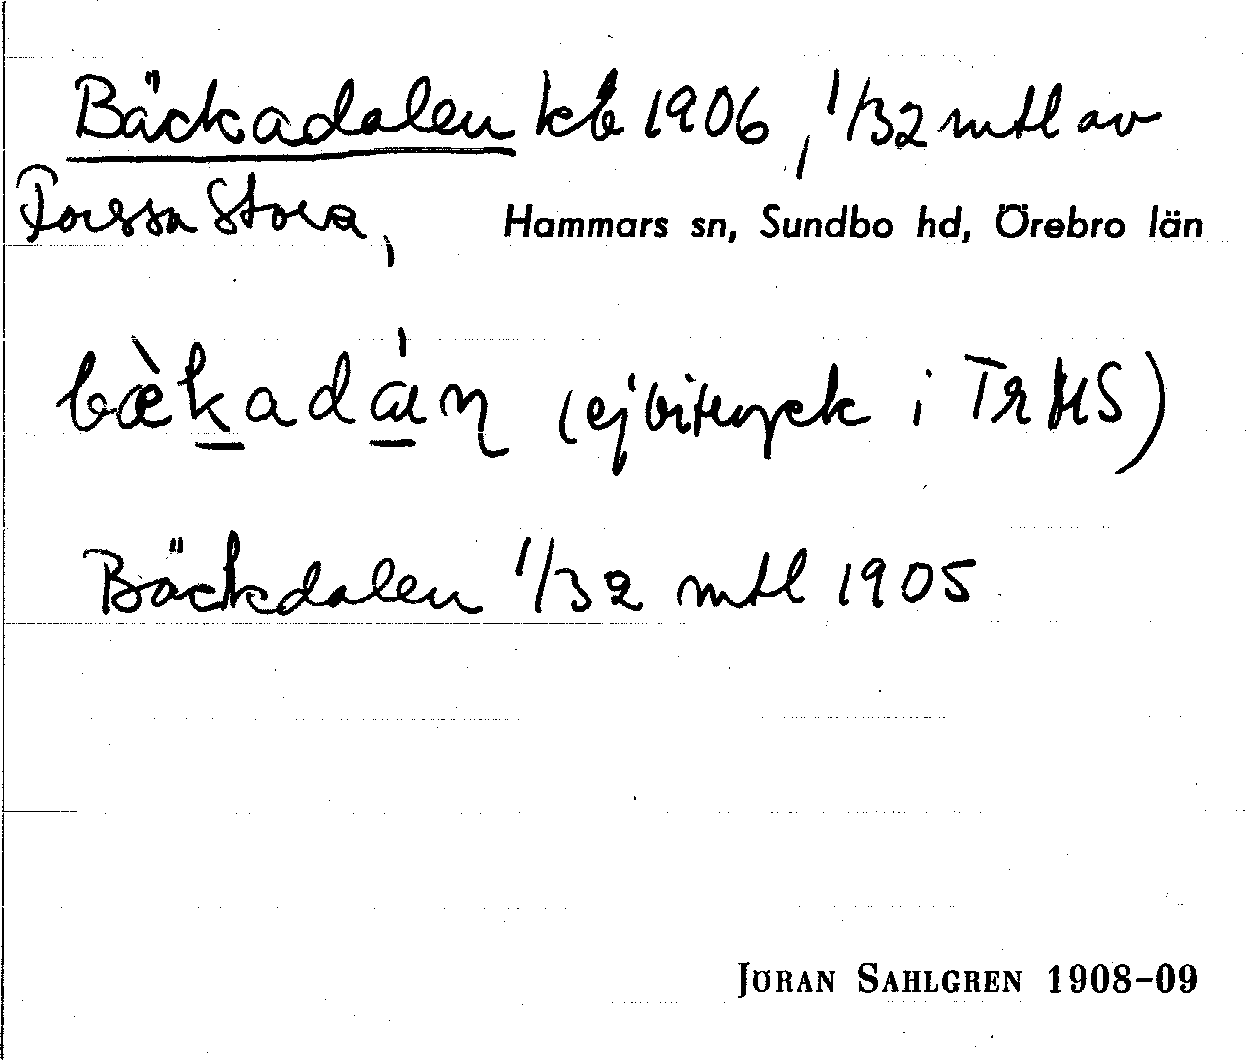 Bäckadalen kb 1906, 1/32 mtl av
Forssa Stora, Hammars sn, Sundbo hd, Örebro län
bæ̀kadán (ej bitryck i Tr HS)
Bäckdalen 1/32 mtl 1905
JÖRAN SAHLGREN 1908-09